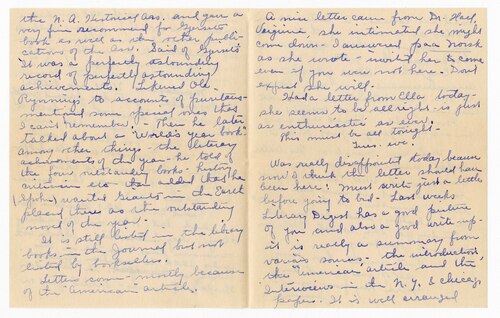 the N.A. Historical Ass. and gave a
very fine recommend for Gjerset's
book as well as the other publi-
cations of the Ass. Said of Gjerset's
It was a perfectly astounding
record of perfectly astounding
achievements. Likened Ole
Rynnings to accounts of
mentioned some special ones that
I can't remember. Then he later
talked about a "World's year book"
among other things - the literary
achievements of the year - he told of
the four outstanding books - history
etc. He added that he
(Spoke) wanted Giants in the Earth
placed there as the outstanding
novel of the year.
It is still listed in the library
books in the Journal but not
listed by booksellers.
Letters come mostly because
of the "American" article.
A nice letter came from Dr. Hael,
Virginia, she intimated she might
come down - I answered paa Norsk
as she wrote - invited her to come
even if you were not here. Don't
expect she will.
Had a letter from Ella today -
she seems to be allright - is just
as enthusiastic as ever.
This must be all tonight -
Tues. eve.
Was really disappointed today because
now I think the letter should have
been here! Must write just a little
before going to bed - Last weeks
Literary Digest has a good picture
of you and also a good write-up -
it is really a summary from
various sources - the introduction,
the "American" article and the
Interviews in the N.Y. & Chicago
papers. It is well arranged